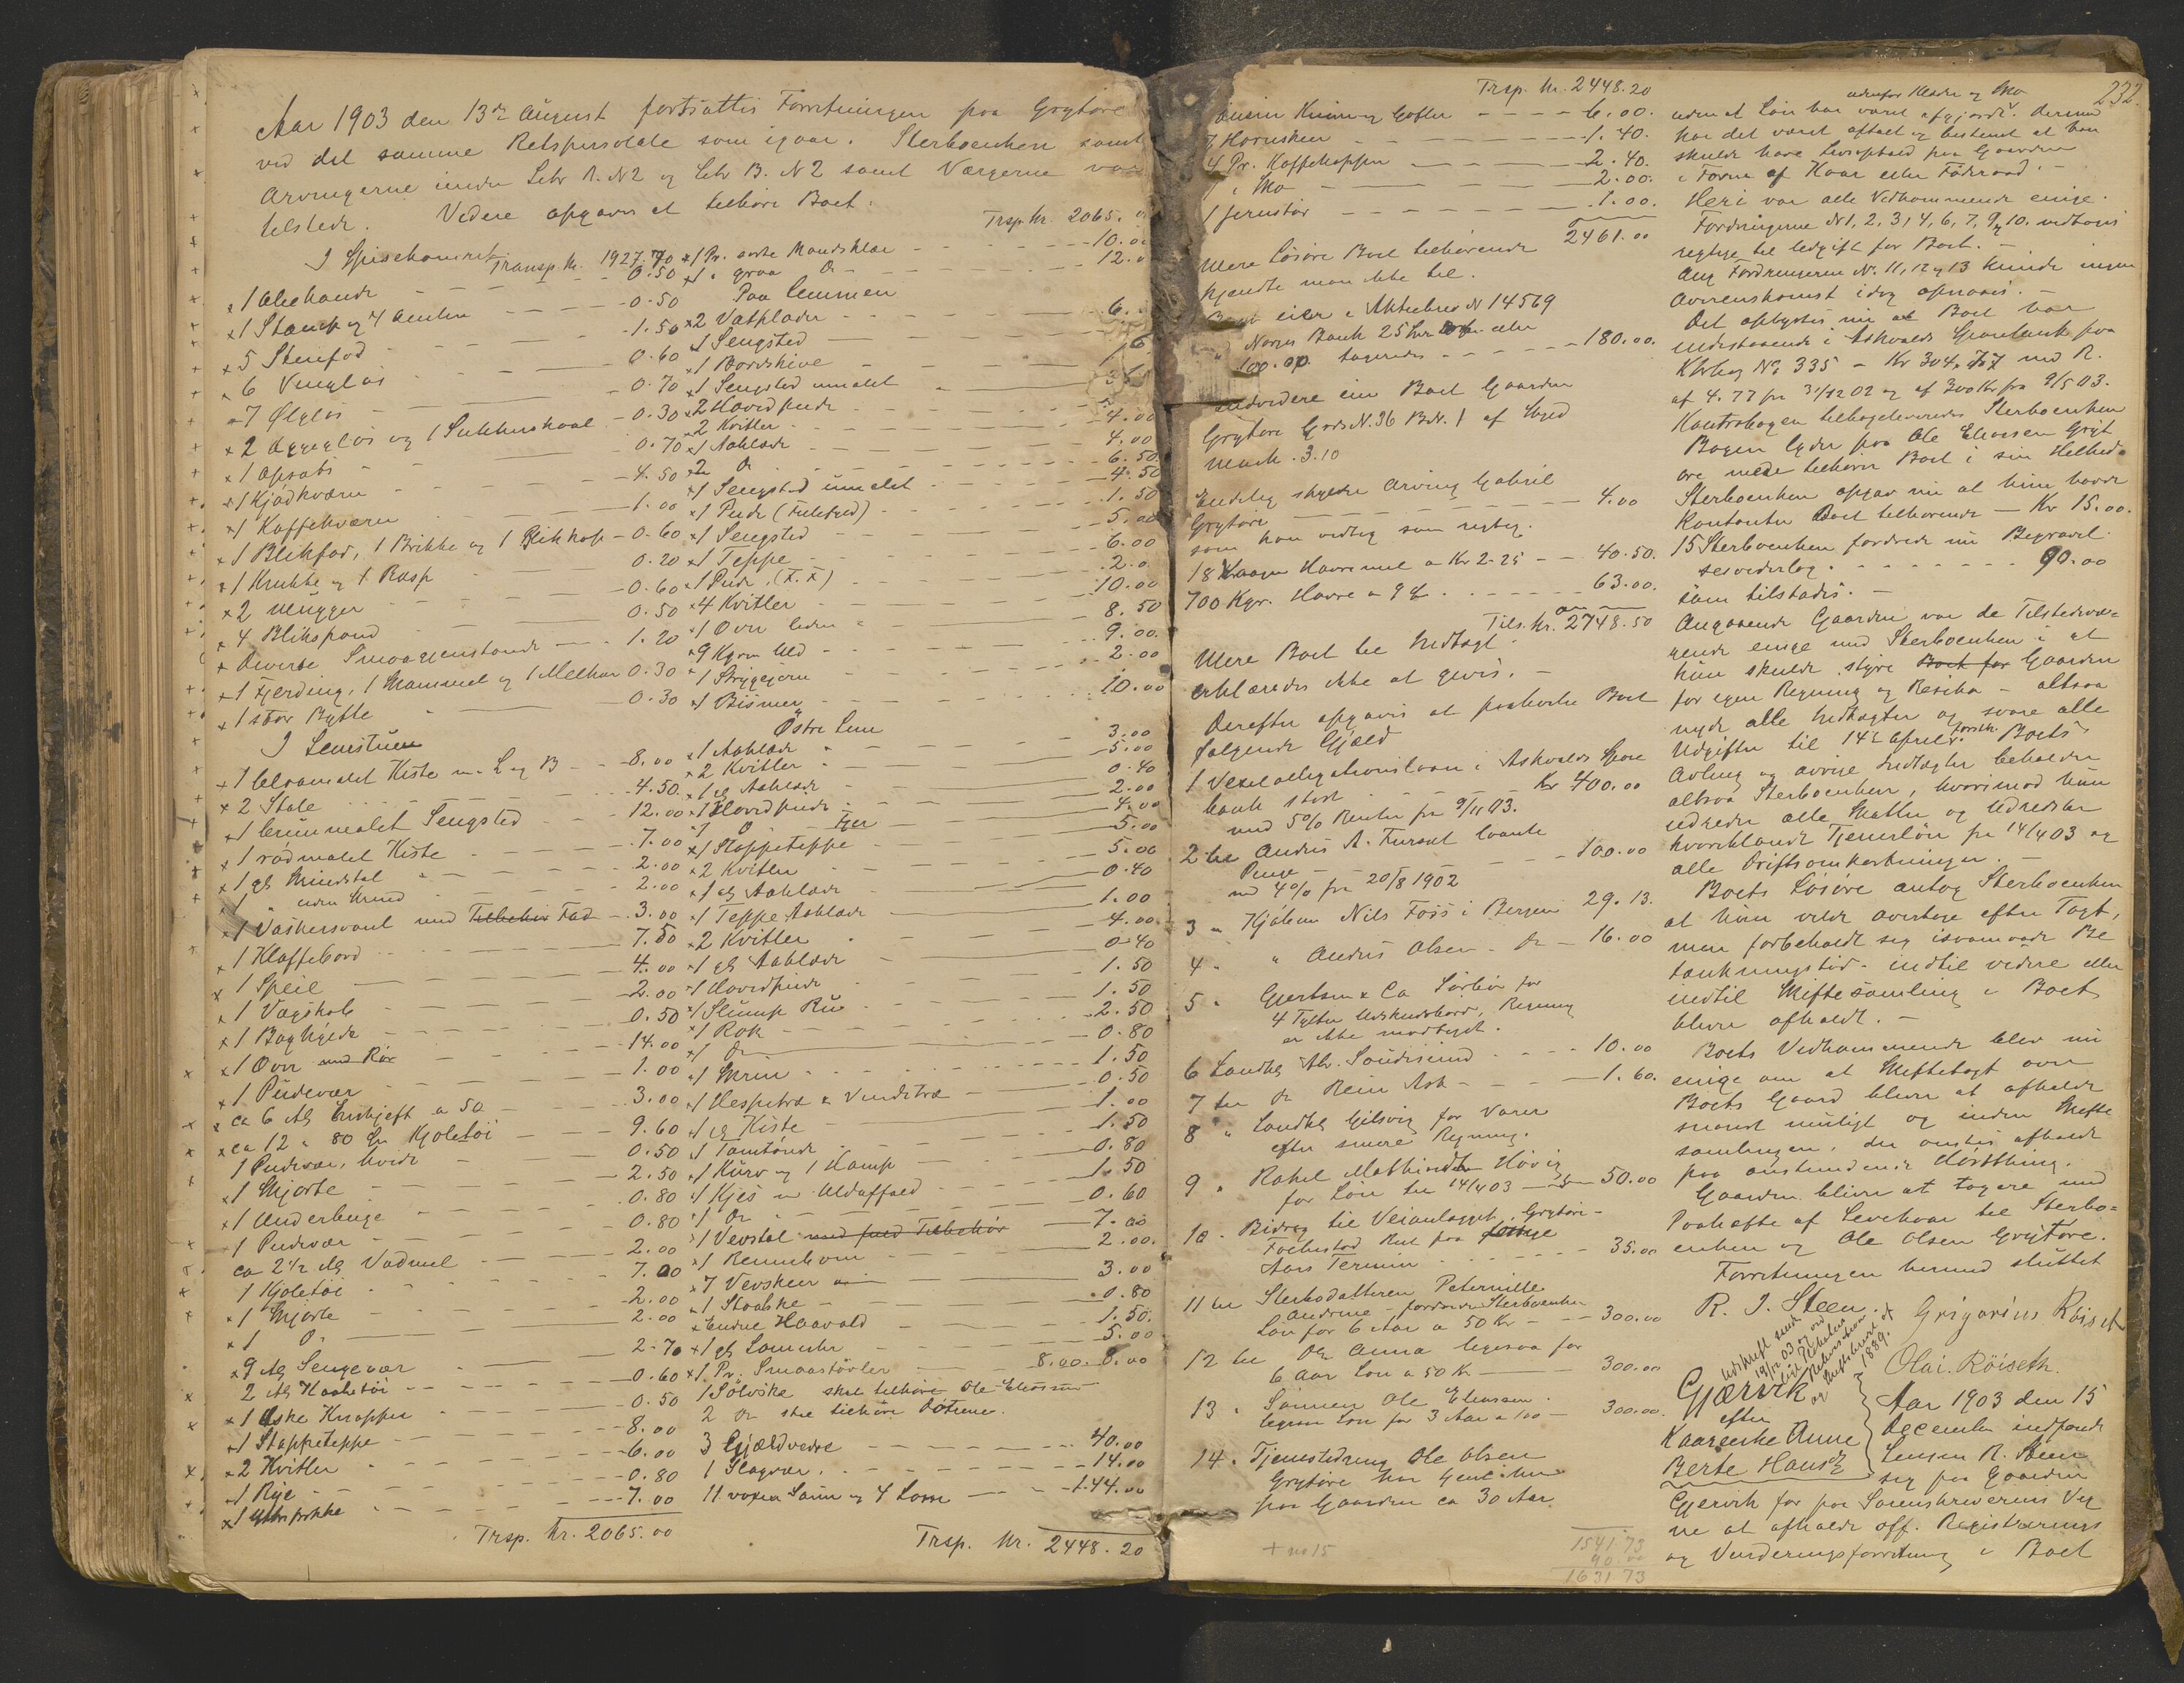 Aar 1903 den 13de August fortsattes Forretningen paa Grytøre
ved det samme Retspersonale som igaar. Sterboenken samt
Arvingerne under Litr A. N2 og Litr B. N2 samt Værgerne var
tilstede. Videre opgaves at tilhøre Boet:
I Spisekamret Transp. Kr. 1927.70
x 1 0.50
x 1 Stamp og 4 0.50
x 5 Stenfad 1.50
x 6 Vinglas 0.60
x 7 Ølglas 0.70
x 2 Æggeglas og 1 Sukkerskaal 0.30
x 1 Opsats 0.70
x 1 Kjødkværn 4.50
x 1 Kaffekværn 1.00
x 1 Blikfad, 1 Brikke og 1 Blikkop 0.60
x 1 Krukke og 1 Rasp 0.20
x 2 Mugger 0.60
x 4 Blikspand 0.50
x Diverse Smaagjenstande 1.20
x 1 Fjerding, 1 og 1 0.30
x 1 stor Bytte 0.30
I Lemstuen
x 1 blaamalet Kiste m. L og B 8.00
x 2 Stole 4.50
x 1 brunmalet Sengsted 12.00
x 1 rødmalet Kiste 7.00
x 1 gl 2.00
x 1 " uden 2.00
x 1 Vaskervant med Tilbehør Fad 3.00
x 1 Klaffebord 7.50
x 1 Speil 4.00
x 1 Vægskab 2.00
x 1 Boghylde 0.50
x 1 Ovn med Rør 14.00
x 1 Pudevar 1.00
x ca 6 Al Enskjeft a 50 3.00
x ca 12 " 80 Kjoletøi 9.60
1 Pudevar, hvidt 0.50
x 1 Skjorte 2.50
x 1 Underbuxe 0.80
x 1 Pudevar 0.80
ca 2 1/2 Al Vadmel 2.00
1 Kjoletøi 7.00
x 1 Skjorte 2.00
x 1 Do 2.00
x 9 Al Sengevar 2.70
2 Al 0.60
x 1 Æske Knapper 0.50
x 1 Stoppeteppe 8.00
x 2 Kvitler 6.00
x 1 Rye 0.80
x 1 7.00
Trsp. Kr. 2065.00
Trsp Kr. 2065.
x 1 Pr. sorte Mandsklær 10.0
x 1 " graa Do 12.0
Paa Lemmen
x 2 Vatplader 6.
x 1 Sengsted
x 1 Bordskive
x 1 Sengsted umalet
x 2 Hovedpuder
x 2 Kvitler 4.00
x 1 Aaklæde 4.00
x 2 Do 6.50
x 1 Sengsted umalet 4.50
x 1 Pude 1.50
x 1 Sengsted 5.00
x 1 Teppe 6.00
x 1 Pude (F.F) 2.0
x 4 Kvitler 10.00
x 1 Ovn liden 8.50
x 9 Kgrm Uld 9.00
x 1 Strygejern 2.00
x 1 Bismer 10.00
Østre Lem
x 1 Aaklæde 3.00
x 2 Kvitler 5.00
x 1 gl Aaklæde 0.40
x 1 Hovedpude 2.00
x 1 Do Fjer 4.00
x 1 Stoppeteppe 5.00
x 2 Kvitler 5.00
x 1 gl Aaklæde 0.40
x 1 Teppe Aaklæde 1.00
x 2 Kvitler 4.00
x 1 gl Aaklæde 0.40
x 1 Hovedpude 1.50
x 1 Slump Ru 1.50
x 1 Rok 2.50
x 1 Do 0.80
x 1 Skrin 1.50
x 1 Hespetræ & Vindetræ 0.50
x 1 gl Kiste 1.00
x 1 Tomtønde 1.50
x 1 Kurv og 1 Kamp 0.80
x 1 Kjes m Uldaffald 1.50
x 1 Do 0.60
x 1 Vevstol med fuld Tilbehør 7.00
x 1 Rennebom 2.00
x 7 Vevskeer 3.00
x 1 0.80
x 1.50
x 1 gl 5.00
x 1 Pr. Smaastøvler 8.00. 8.00
1 Sølvske skal tilhøre Ole Eliassen
2 Do skal tilhøre Døtrene.
3 Gjældvedre 40.00
1 Slagvær 14.00
11 voxen Sauer og 4 Lam 144.00
Trsp. Kr. 2448.20
232.
Trsp. Kr. 2448.20
Knive og Gafler 6.00.
7 Hornskeer 1.40.
4 Pr. Kaffekopper 2.40.
1 " Sko 2.00.
1 Jernstør 1.00.
2461.00
Mere Løsøre Boet tilhørende
kjendte man ikke til.
Boet eier 1 Aktiebrev N 14569
i Norges Bank 25 eller
100.00 tageredes 180.00.
endvidere eier Boet Gaarden
Grytøre Grds N. 36 B.N. 1 af Skyld
Mark. 3.10
Endelig skylder Arving Gabriel
Grytøre 4.00
som han vedtog som rigtig.
18 Vaager Havremel a Kr 2.25 40.50.
700 Kgr. Havre a 9 63.00.
Tils. Kr. 2748.50
Mere Boet til Indtægt
erklæredes ikke at gives.
Derefter opgaves at paahvile Boet
følgende Gjæld
1 Vexelobligationslaan i Askvolds Spare
bank stort Kr 400.00
med 5% Renter fra 9/11 03.
2 til Andreas A. Fursæt laante
Penge 100.00
med 4% fra 20/8 1902
3 " Kjøbm Nils Foss i Bergen 29.13.
4 " " Andreas Olsen Do 16.00
5 " Gjertsen & Co Førde for
4 Tylfter Udskudsbord, Regning
er ikke modtaget.
6 Landh Ths. Sandesund 10.00
7 til Do Rein Ask 1.60.
8 " Landh Gilsvig for Varer
efter senere Regning.
9 " Rakel Mathisdtr Høvig
for Løn til 14/4 03 50.00
10 " Bidrag til Veianlægget Grytøre-
Folkestad Rest fra forrige
Aars Termin 35.00
11 til Sterbodatteren Peternille
Andrine fordrer Sterboenken
Løn for 6 Aar a 50 Kr 300.00
12 til Do Anna ligesaa for
6 Aar Løn a 50 Kr 300.00
13 " Sønnen Ole Eliassen
ligesaa Løn for 3 Aar a 100 300.00.
14. Tjenestedreng Ole Olsen
Grytøre har tjent her
paa Gaarden ca 30 Aar
+ no 15
1541 73
90.00
1631 73
udenfor Klæder og Sko
uden at Løn har været afgjort. Derimod
har det været aftalt og bestemt at han
skulde have Livsophold paa Gaarden
i Form af Kaar eller Føderaad.
Heri var alle Vedkommende enige.
Fordringerne N 1, 2, 3, 4, 6, 7, 9 og 10. vedtoges
rigtige til Udgift for Boet.
Ang Fordringerne Nr. 11, 12 og 13 kunde ingen
Overenskomst idag opnaaes.
Det oplystes nu at Boet har
indestaaende i Askvolds Sparebank paa
Ktrbog No 335 - Kr 304.77 med R.
af 4.77 fra 31/12 02 og af 300 Kr fra 9/5 03.
Kontrabogen tilbageleveredes Sterboenken
Bogen lyder paa Ole Eliassen Gryt
øre men tilhører Boet i sin Helhed.
Sterboenken opgav nu at hun havde
Kontanter Boet tilhørende Kr 15.00.
15 Sterboenken fordrede nu Begravel-
sesvederlag 90.00
som tilstodes.
Angaaende Gaarden var de Tilstedevæ-
rende enige med Sterboenken i at
hun skulde styre Boet for Gaarden
for egen Regning og Resiko - altsaa
nyde alle Indtægter og svare alle
Udgifter til 14de April Boets
Avling og øvrige Indtægter beholder
altsaa Sterboenken, hvorimod hun
udreder alle Skatter og Udredsler
hvoriblandt Tjenerløn fra 14/4 03 og
alle Driftsomkostninger.
Boets Løsøre antog Sterboenken
at hun vilde overtage efter Taxt,
men forbeholdt sig isaamaade Be
tænkningstid indtil videre eller
indtil Skiftesamling i Boet
bliver afholdt.
Boets Vedkommende blev nu
enige om at Skiftetaxt over
Boets Gaard bliver at afholde
snarest muligt og inden Skifte
samlingen, der ønskes afholdt
paa anstundende Høstthing.
Gaarden bliver at taxere med
Paahefte af Levekaar til Sterbo=
enken og Ole Olsen Grytøre.
Forretningen hermed sluttet
R. J. Steen. Grigorius Røiset
Olai. Røiseth.
Udskrift sendt
19/12 03 og
1889.
Gjærvik
efter
Kaarenke Anne
Berte Hansd.
Aar 1903 den 15
December indfandt
Lensm R. Steen
sig paa Gaarden
Gjervik for paa Sorenskriverens Veg
ne at afholde off. Registrerings
og Vurderingsforretning i Boet